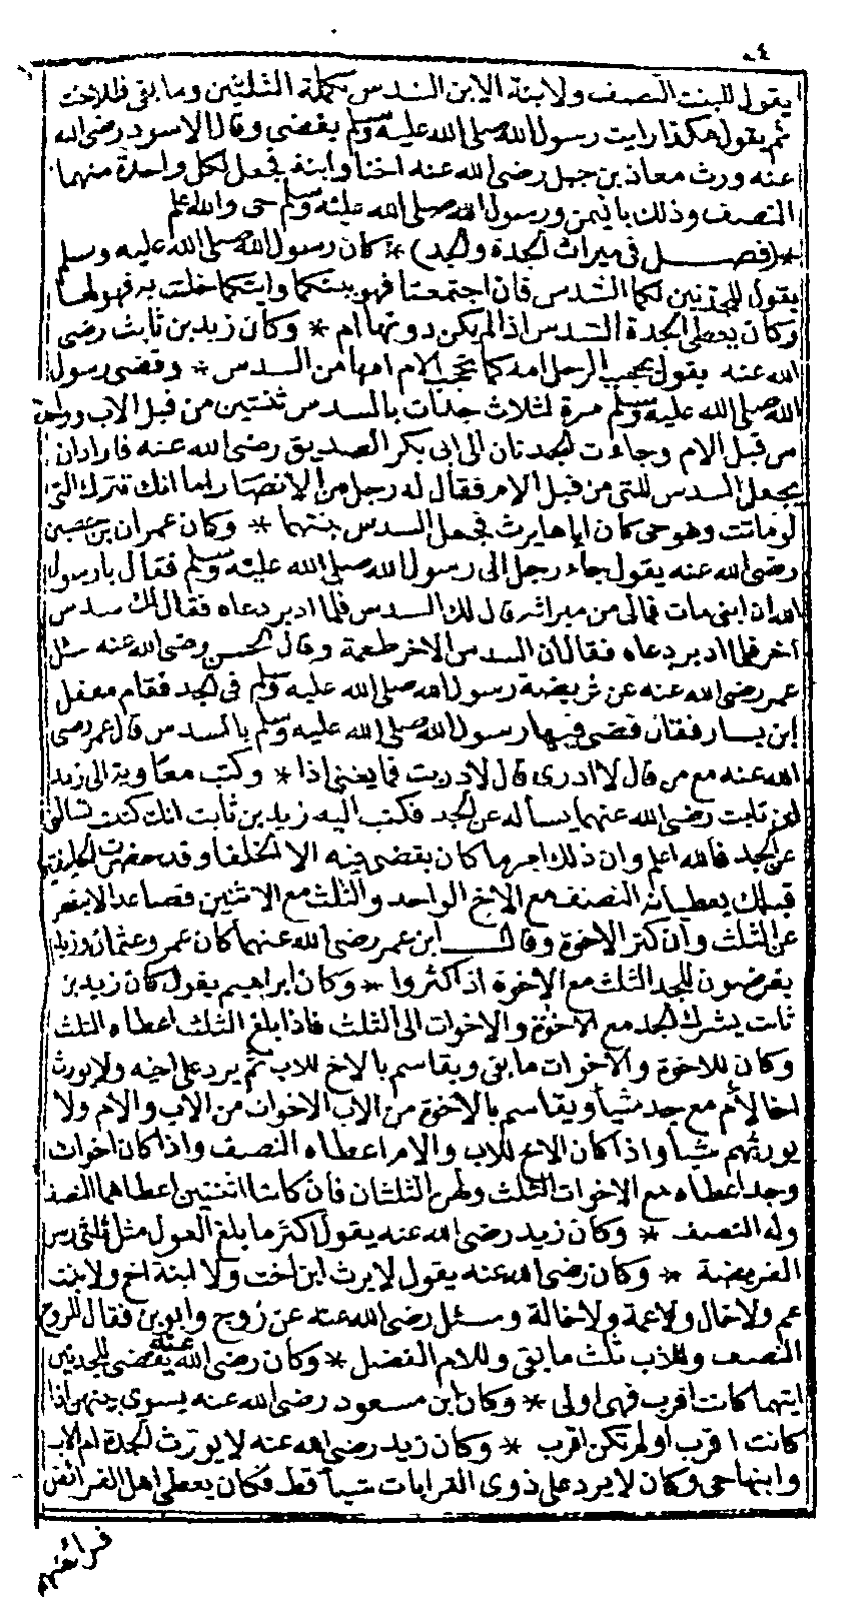 ٤
يقول للبنت النصف ولابنة الابن السدس تكملة الثلثين وما بقى فللاخت
ثم يقول هكذا رايت رسول الله صلى الله عليه وسلم يقضى وقال الاسود رضى الله
عنه ورث معاذ بن جبل رضى الله عنه اختا وابنة فجعل لكل واحدة منهما
النصف وذلك باليمن ورسول الله صلى الله عليه وسلم حى والله اعلم
*(فصــل فى ميراث الجدة والجد)* كان رسول الله صلى الله عليه وسلم
يقول للجدتين لكما السدس فان اجتمعتا فهو بينكما وايتكما خلت به فهو لها
وكان يعطى الجدة السدس اذا لم يكن دونها ام * وكان زيد بن ثابت رضى
الله عنه يقول يحجب الرجل امه كما تحجب الام امها من السدس * وقضى رسول
الله صلى الله عليه وسلم مرة لثلاث جدات بالسدس ثنتين من قبل الاب وواحدة
من قبل الام وجاءت الجدتان الى ابى بكر الصديق رضى الله عنه فاراد ان
يجعل السدس للتى من قبل الام فقال له رجل من الانصار اما انك تترك التى
لو ماتت وهو حى كان اياها يرث فجعل السدس بينهما * وكان عمران بن حصين
رضى الله عنه يقول جاء رجل الى رسول الله صلى الله عليه وسلم فقال يا رسول
الله ان ابنى مات فمالى من ميراثه قال لك السدس فلما ادبر دعاه فقال لك سدس
آخر فلما ادبر دعاه فقال ان السدس الاخر طعمة وقال الحسن رضى الله عنه سئل
عمر رضى الله عنه عن فريضة رسول الله صلى الله عليه وسلم فى الجد فقام معقل
ابن يسار فقال قضى فيها رسول الله صلى الله عليه وسلم بالسدس قال عمر رضى
الله عنه مع من قال لا ادرى قال لا دريت فما يغنى اذا * وكتب معاوية الى زيد
ابن ثابت رضى الله عنهما يسأله عن الجد فكتب اليه زيد بن ثابت انك كتبت تسالنى
عن الجد فالله اعلم وان ذلك امر ما كان يقضى فيه الا الخلفا وقد حضرت الخليفتين
قبلك يعطيانه النصف مع الاخ الواحد والثلث مع الاثنين فصاعدا لا ينقص
عن الثلث وان كثر الاخوة وقالــ ابن عمر رضى الله عنهما كان عمر وعثمان وزيد
يفرضون للجد الثلث مع الاخوة اذا كثروا * وكان ابراهيم يقول كان زيد بن
ثابت يشرك الجد مع الاخوة والاخوات الى الثلث فاذا بلغ الثلث اعطاه الثلث
وكان للاخوة والاخوات ما بقى ويقاسم بالاخ للاب ثم يرد على اخيه ولا يورث
اخا لأم مع جد شيأ ويقاسم بالاخوة من الاب الاخوات من الاب والام ولا
يورثهم شيأ واذا كان الاخ للاب والام اعطاه النصف واذا كان اخوات
وجد اعطاه مع الاخوات الثلث ولهن الثلثان فان كانتا اثنتين اعطاهما النصف
وله النصف * وكان زيد رضى الله عنه يقول اكثر ما بلغ العول مثل ثلثى رس
الفريضة * وكان رضى الله عنه يقول لا يرث ابن اخت ولا ابنة اخ ولا بنت
عم ولا خال ولا عمة ولا خالة وسئل رضى الله عنه عن زوج وابوين فقال للزوج
النصف وللاب ثلث ما بقى وللام الفضل * وكان رضى الله عنه يقضى للجدتين
ايتهما كانت اقرب فهى اولى * وكان ابن مسعود رضى الله عنه يسوى بينهن اذا
كانت اقرب او لم تكن اقرب * وكان زيد رضى الله عنه لا يورث الجدة ام الاب
وابنها حى وكان لا يرد على ذوى القرابات شيأ قط فكان يعطى اهل الفرائض
فرائضهم